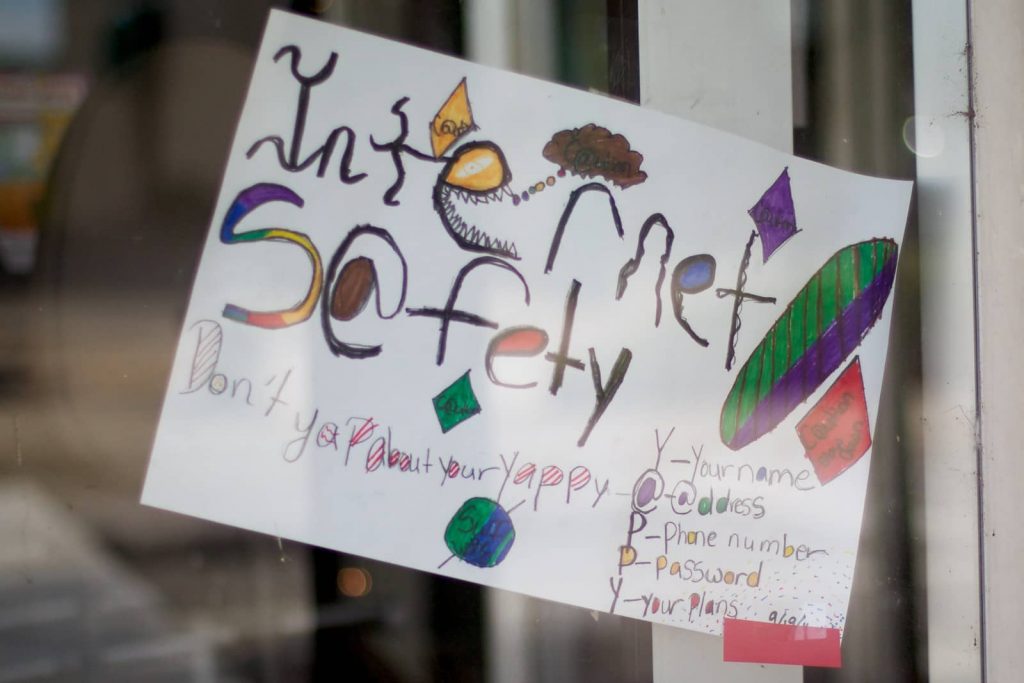 Internet
S@fety
Don't yap about your yappy
Y-Your name
@-@ddress
P-Phone number
P-password
Y-your plans